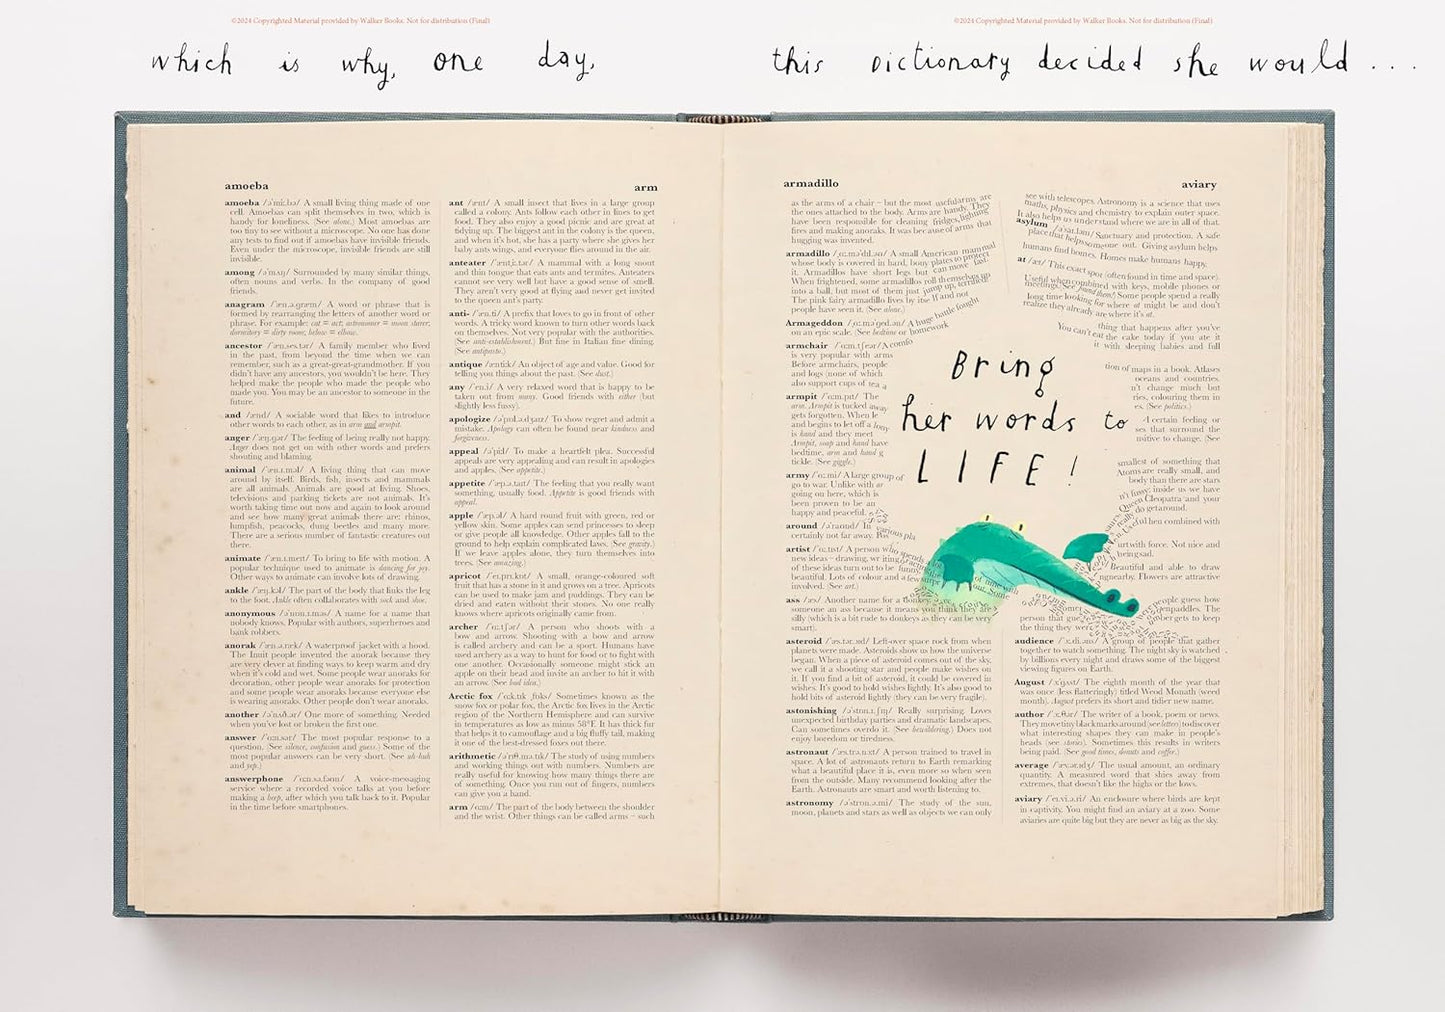 ©2024 Copyrighted Material provided by Walker Books. Not for distribution (Final)
©2024 Copyrighted Material provided by Walker Books. Not for distribution (Final)
which is why, one day,
this dictionary decided she would . . .
amoeba
arm
amoeba /ə'miː.bə/ A small living thing made of one
cell. Amoebas can split themselves in two, which is
handy for loneliness. (See alone.) Most amoebas are
too tiny to see without a microscope. No one has done
any tests to find out if amoebas have invisible friends.
Even under the microscope, invisible friends are still
invisible.
among /ə'mʌŋ/ Surrounded by many similar things,
often nouns and verbs. In the company of good
friends.
anagram /'æn.ə.græm/ A word or phrase that is
formed by rearranging the letters of another word or
phrase. For example: cat = act; astronomer = moon starer;
dormitory = dirty room; below = elbow.
ancestor /'æn.ses.tər/ A family member who lived
in the past, from beyond the time when we can
remember, such as a great-great-grandmother. If you
didn't have any ancestors, you wouldn't be here. They
helped make the people who made the people who
made you. You may be an ancestor to someone in the
future.
and /ænd/ A sociable word that likes to introduce
other words to each other, as in arm and armpit.
anger /'æŋ.gər/ The feeling of being really not happy.
Anger does not get on with other words and prefers
shouting and blaming.
animal /'æn.ɪ.məl/ A living thing that can move
around by itself. Birds, fish, insects and mammals
are all animals. Animals are good at living. Shoes,
televisions and parking tickets are not animals. It's
worth taking time out now and again to look around
and see how many great animals there are: rhinos,
lumpfish, peacocks, dung beetles and many more.
There are a serious number of fantastic creatures out
there.
animate /'æn.ɪ.meɪt/ To bring to life with motion. A
popular technique used to animate is dancing for joy.
Other ways to animate can involve lots of drawing.
ankle /'æŋ.kəl/ The part of the body that links the leg
to the foot. Ankle often collaborates with sock and shoe.
anonymous /ə'nɒn.ɪ.məs/ A name for a name that
nobody knows. Popular with authors, superheroes and
bank robbers.
anorak /'æn.ə.ræk/ A waterproof jacket with a hood.
The Inuit people invented the anorak because they
are very clever at finding ways to keep warm and dry
when it's cold and wet. Some people wear anoraks for
decoration, other people wear anoraks for protection
and some people wear anoraks because everyone else
is wearing anoraks. Other people don't wear anoraks.
another /ə'nʌð.ər/ One more of something. Needed
when you've lost or broken the first one.
answer /'ɑːn.sər/ The most popular response to a
question. (See silence, confusion and guess.) Some of the
most popular answers can be very short. (See uh-huh
and yep.)
answerphone /'ɑːn.sə.fəʊn/ A voice-messaging
service where a recorded voice talks to you before
making a beep, after which you talk back to it. Popular
in the time before smartphones.
ant /ænt/ A small insect that lives in a large group
called a colony. Ants follow each other in lines to get
food. They also enjoy a good picnic and are great at
tidying up. The biggest ant in the colony is the queen,
and when it's hot, she has a party where she gives her
baby ants wings, and everyone flies around in the air.
anteater /'ænt.iː.tər/ A mammal with a long snout
and thin tongue that eats ants and termites. Anteaters
cannot see very well but have a good sense of smell.
They aren't very good at flying and never get invited
to the queen ant's party.
anti- /'æn.ti/ A prefix that loves to go in front of other
words. A tricky word known to turn other words back
on themselves. Not very popular with the authorities.
(See anti-establishment.) But fine in Italian fine dining.
(See antipasto.)
antique /æn'tiːk/ An object of age and value. Good for
telling you things about the past. (See dust.)
any /'en.i/ A very relaxed word that is happy to be
taken out from many. Good friends with either (but
slightly less fussy).
apologize /ə'pɒl.ə.dʒaɪz/ To show regret and admit a
mistake. Apology can often be found near kindness and
forgiveness.
appeal /ə'piːl/ To make a heartfelt plea. Successful
appeals are very appealing and can result in apologies
and apples. (See appetite.)
appetite /'æp.ə.taɪt/ The feeling that you really want
something, usually food. Appetite is good friends with
appeal.
apple /'æp.əl/ A hard round fruit with green, red or
yellow skin. Some apples can send princesses to sleep
or give people all knowledge. Other apples fall to the
ground to help explain complicated laws. (See gravity.)
If we leave apples alone, they turn themselves into
trees. (See amazing.)
apricot /'eɪ.prɪ.kɒt/ A small, orange-coloured soft
fruit that has a stone in it and grows on a tree. Apricots
can be used to make jam and puddings. They can be
dried and eaten without their stones. No one really
knows where apricots originally came from.
archer /'ɑː.tʃər/ A person who shoots with a
bow and arrow. Shooting with a bow and arrow
is called archery and can be a sport. Humans have
used archery as a way to hunt for food or to fight with
one another. Occasionally someone might stick an
apple on their head and invite an archer to hit it with
an arrow. (See bad idea.)
Arctic fox /'ɑːk.tɪk ˌfɒks/ Sometimes known as the
snow fox or polar fox, the Arctic fox lives in the Arctic
region of the Northern Hemisphere and can survive
in temperatures as low as minus 58°F. It has thick fur
that helps it to camouflage and a big fluffy tail, making
it one of the best-dressed foxes out there.
arithmetic /ə'rɪθ.mə.tɪk/ The study of using numbers
and working things out with numbers. Numbers are
really useful for knowing how many things there are
of something. Once you run out of fingers, numbers
can give you a hand.
arm /ɑːm/ The part of the body between the shoulder
and the wrist. Other things can be called arms – such
armadillo
aviary
as the arms of a chair – but the most useful arms are
the ones attached to the body. Arms are handy. They
have been responsible for cleaning fridges, fighting
fires and making anoraks. It was because of arms that
hugging was invented.
armadillo /ˌɑː.mə'dɪl.əʊ/ A small American mammal
whose body is covered in hard, bony plates to protect
it. Armadillos have short legs but can move fast.
When frightened, some armadillos roll themselves up
into a ball, but most of them just jump up, terrified.
The pink fairy armadillo lives by itself and not
people have seen it. (See alone.)
Armageddon /ˌɑː.mə'ged.ən/ A huge battle fought
on an epic scale. (See bedtime or homework
armchair /'ɑːm.tʃeər/ A comfo
is very popular with arms
Before armchairs, people
and logs (none of which
also support cups of tea a
armpit /'ɑːm.pɪt/ The
arm. Armpit is tucked away
gets forgotten. When le
and begins to let off a
is hand and they meet
Armpit, soap and hand have
bedtime, arm and hand g
tickle. (See giggle.)
army /'ɑː.mi/ A large group of
go to war. Unlike with ar
going on here, which is
been proven to be an
happy and peaceful.
around /ə'raʊnd/ In various pla
certainly not far away.
artist /'ɑː.tɪst/ A person who spends
new ideas – drawing, writing
of these ideas turn out to be
beautiful. Lots of colour and a few
involved. (See art.)
ass /æs/ Another name for a donkey.
someone an ass because it means you think they are
silly (which is a bit rude to donkeys as they can be very
smart).
asteroid /'æs.tər.ɔɪd/ Left-over space rock from when
planets were made. Asteroids show us how the universe
began. When a piece of asteroid comes out of the sky,
we call it a shooting star and people make wishes on
it. If you find a bit of asteroid, it could be covered in
wishes. It's good to hold wishes lightly. It's also good to
hold bits of asteroid lightly (they can be very fragile).
astonishing /ə'stɒn.ɪ.ʃɪŋ/ Really surprising. Loves
unexpected birthday parties and dramatic landscapes.
Can sometimes overdo it. (See bewildering.) Does not
enjoy boredom or tiredness.
astronaut /'æs.trə.nɔːt/ A person trained to travel in
space. A lot of astronauts return to Earth remarking
what a beautiful place it is, even more so when seen
from the outside. Many recommend looking after the
Earth. Astronauts are smart and worth listening to.
astronomy /ə'strɒn.ə.mi/ The study of the sun,
moon, planets and stars as well as objects we can only
see with telescopes. Astronomy is a science that uses
maths, physics and chemistry to explain outer space.
It also helps us understand where we are in all of that.
asylum /ə'saɪ.ləm/ Sanctuary and protection. A safe
place that helps someone out. Giving asylum helps
humans find homes. Homes make humans happy.
at /æt/ This exact spot (often found in time and space).
Useful when combined with keys, mobile phones or
meetings. (See found them!) Some people spend a really
long time looking for where at might be and don't
realize they already are where it's at.
thing that happens after you've
You can't eat the cake today if you ate it
it with sleeping babies and full
tion of maps in a book. Atlases
oceans and countries.
n't change much but
ries, colouring them in
es. (See politics.)
A certain feeling or
ses that surround the
nsitive to change. (See
smallest of something that
Atoms are really small, and
body than there are stars
n't funny; inside us we have
Queen Cleopatra and your
really do get around.
Useful when combined with
urt with force. Not nice and
being sad.
Beautiful and able to draw
ngnearby. Flowers are attractive
people guess how
person that gue
the thing they were
mber gets to keep
audience /'ɔː.di.əns/ A group of people that gather
together to watch something. The night sky is watched
by billions every night and draws some of the biggest
viewing figures on Earth.
August /ɔː'gʌst/ The eighth month of the year that
was once (less flatteringly) titled Weod Monath (weed
month). August prefers its short and tidier new name.
author /'ɔː.θər/ The writer of a book, poem or news.
They move tiny black marks around (see letters) to discover
what interesting shapes they can make in people's
heads (see stories). Sometimes this results in writers
being paid. (See good times, donuts and coffee.)
average /'æv.ər.ɪdʒ/ The usual amount, an ordinary
quantity. A measured word that shies away from
extremes, that doesn't like the highs or the lows.
aviary /'eɪ.vi.ə.ri/ An enclosure where birds are kept
in captivity. You might find an aviary at a zoo. Some
aviaries are quite big but they are never as big as the sky.
Bring
her words to
LIFE!